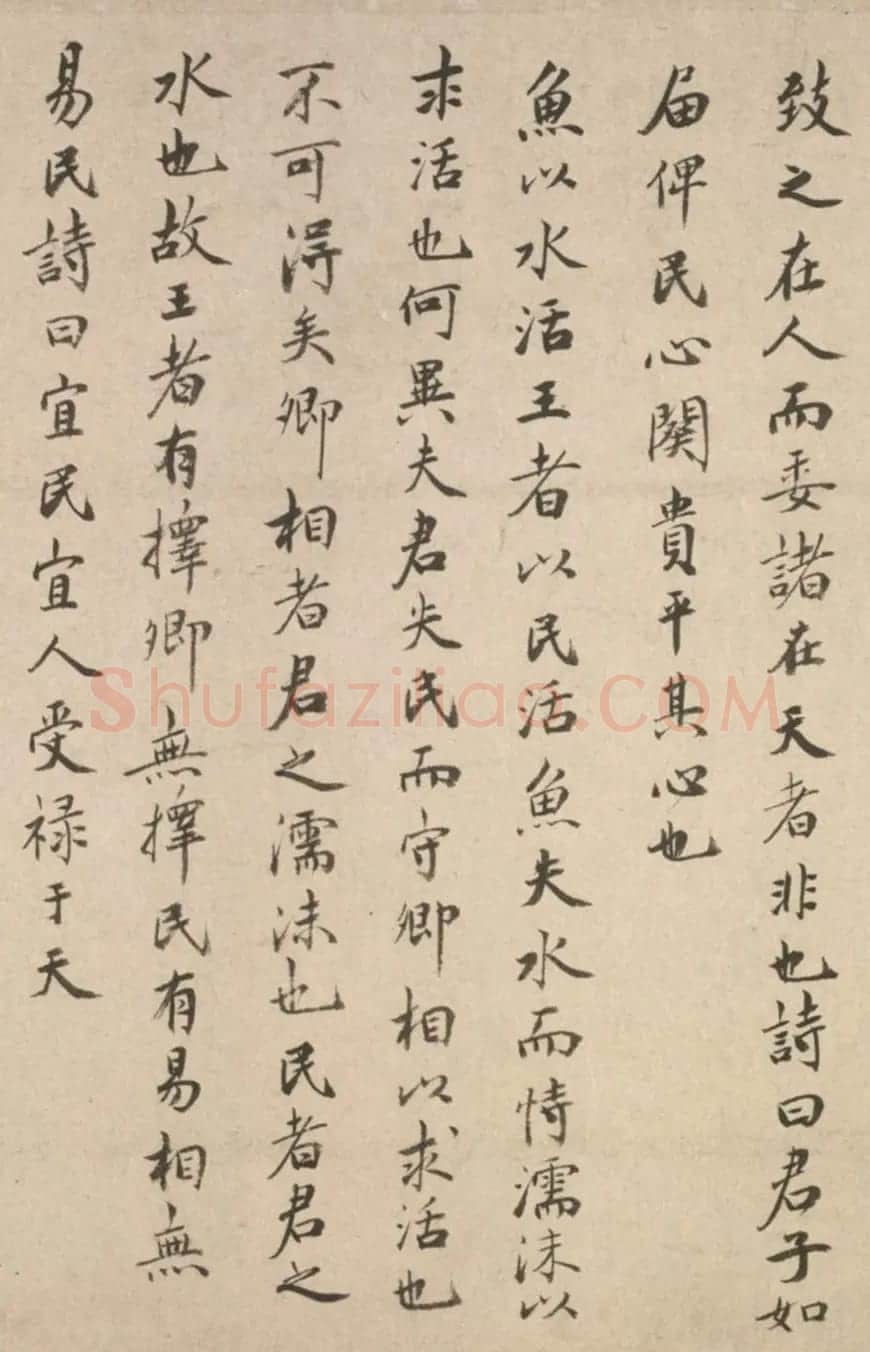 致之在人而委諸在天者非也詩曰君子如
届俾民心闋貴平其心也
魚以水活王者以民活魚失水而恃濡沫以
求活也何異夫君失民而守卿相以求活也
不可得矣卿相者君之濡沫也民者君之
水也故王者有擇卿無擇民有易相無
易民詩曰宜民宜人受禄于天
Shufaziliao.COM